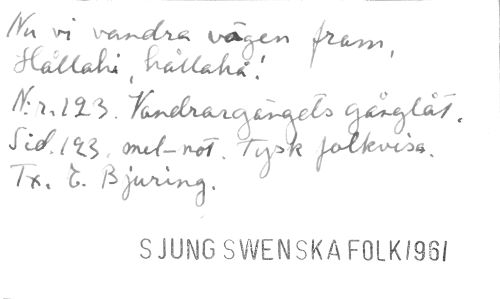 Nu vi vandra vägen fram,
Hållahi, hållahå!
N:r. 123. Vandrargängets gånglåt.
Sid. 123. mel-not. Tysk folkvisa.
Tx. E. Bjuring.
SJUNG SWENSKA FOLK 1961